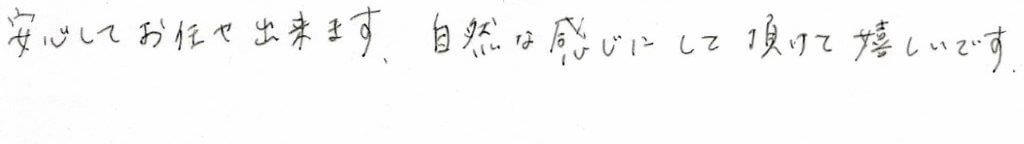 安心してお任せ出来ます、自然な感じにして頂けて嬉しいです.